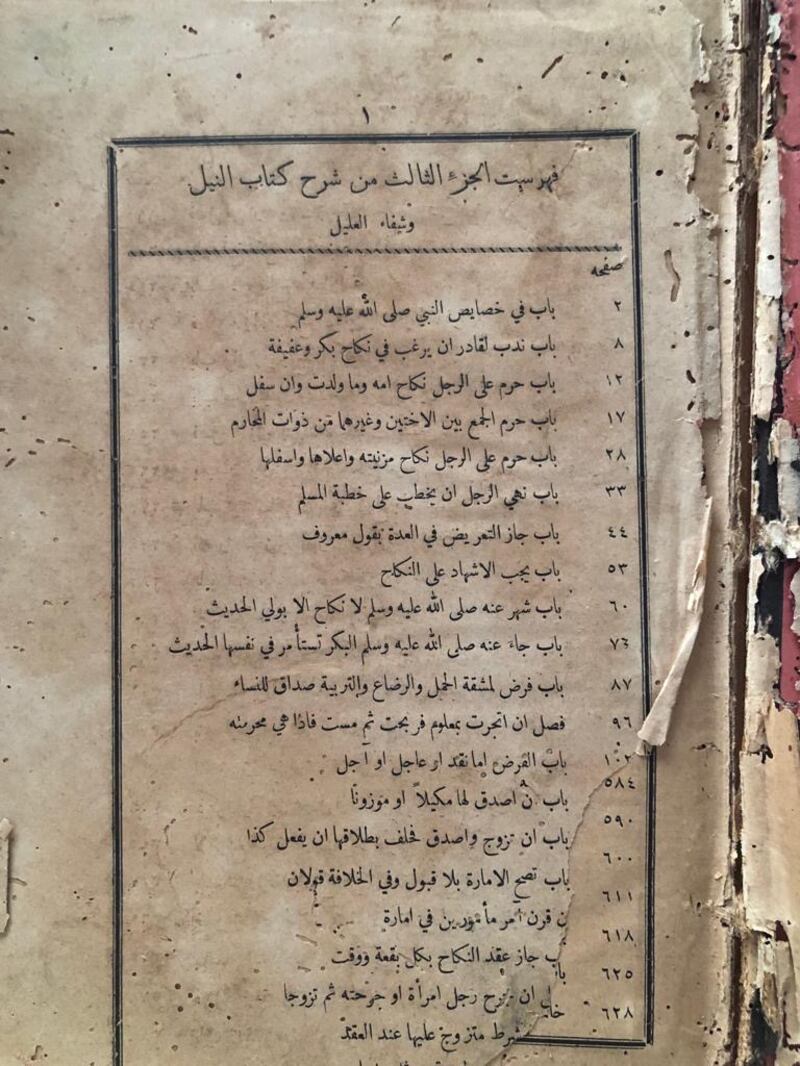 ١
فهرست الجزء الثالث من شرح كتاب النيل
وشفاء العليل
صفحه
٢ باب في خصايص النبي صلى الله عليه وسلم
٨ باب ندب لقادر ان يرغب في نكاح بكر وعفيفة
١٢ باب حرم على الرجل نكاح امه وما ولدت وان سفل
١٧ باب حرم الجمع بين الاختين وغيرهما من ذوات المحارم
٢٨ باب حرم على الرجل نكاح مزنيته واعلاها واسفلها
٣٣ باب نهي الرجل ان يخطب على خطبة المسلم
٤٤ باب جاز التعريض في العدة بقول معروف
٥٣ باب يجب الاشهاد على النكاح
٦٠ باب شهر عنه صلى الله عليه وسلم لا نكاح الا بولي الحديث
٧٦ باب جاء عنه صلى الله عليه وسلم البكر تستأمر في نفسها الحديث
٨٧ باب فرض لمشقة الحمل والرضاع والتربية صداق للنساء
٩٦ فصل ان اتجرت بمعلوم فربحت ثم مست فاذا هي محرمته
١٠٢ باب الفرض اما نقد او عاجل او آجل
٥٨٤ باب ن اصدق لها مكيلاً او موزونا
٥٩٠ باب ان تزوج واصدق فحلف بطلاقها ان يفعل كذا
٦٠٠ باب تصح الامارة بلا قبول وفي الخلافة قولان
٦١١ ن قرن آمر مأمورين في امارة
٦١٨ ب جاز عقد النكاح بكل بقعة ووقت
٦٢٥ با ان جرح رجل امرأة او جرحته ثم تزوجا
٦٢٨ شرط متزوج عليها عند العقد